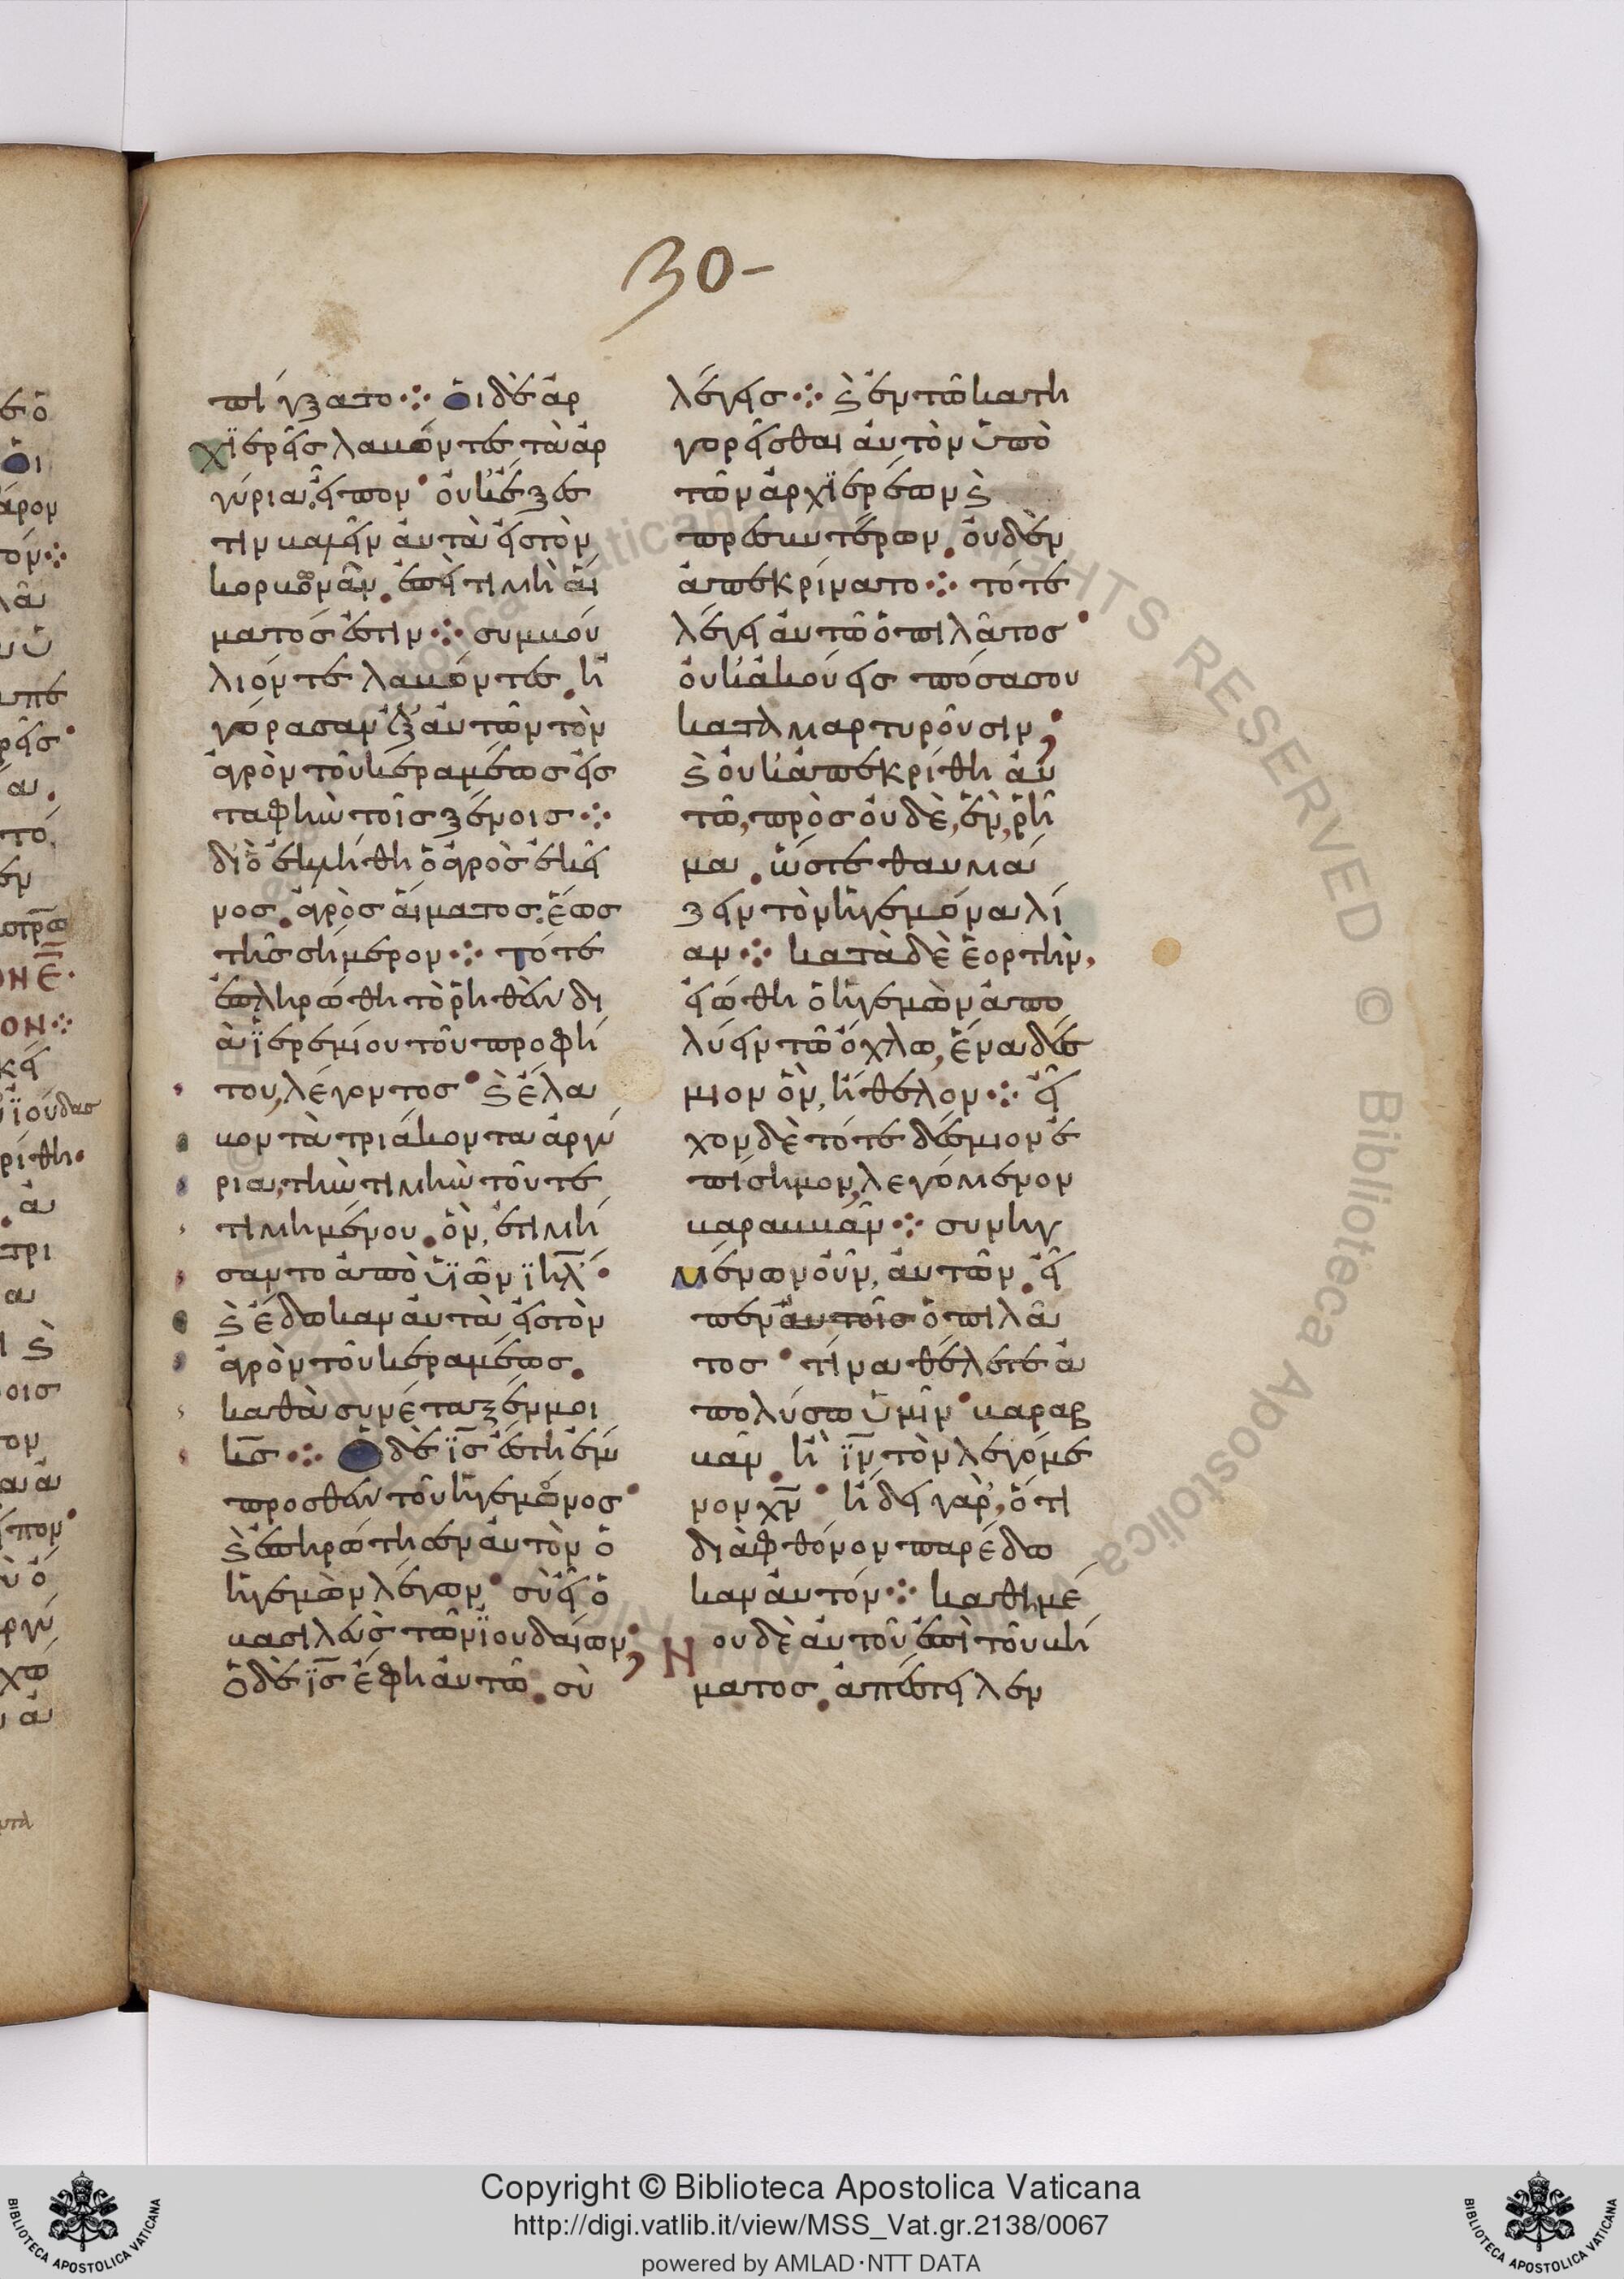 30-
πήγξατο ⁘ Οἱ δὲ ἀρ
χϊερεῖς λαβόντες τὰ ἀρ
γύρια, εἶπον· οὐκ ἔξεσ
τιν βαλεῖν αὐτὰ εἰς τὸν
κορβονᾶν. ἐπεὶ τιμὴ αἵ
ματος ἐστιν ⁘ συμβού
λιόν τε λαβόντες. ἠ
γόρασαν ἐξ αὐτῶν τὸν
ἀγρὸν τοῦ κεραμέως εἰς
ταφὴν τοῖς ξένοις ⁘
διὸ ἐκλήθη ὁ ἀγρὸς ἐκεῖ
νος. ἀγρὸς αἵματος. ἕως
τῆς σήμερον ⁘ τότε
ἐπληρώθη τὸ ῥηθὲν δι
ὰ ϊερεμίου τοῦ προφή
του, λέγοντος· καὶ ἔλα
βον τὰ τριάκοντα ἀργύ
ρια, τὴν τιμὴν τοῦ τε
τιμημένου. ὃν, ἐτιμή
σαντο ἀπὸ ϋϊῶν ϊηλ·
καὶ ἔδωκαν αὐτὰ εἰς τὸν
ἀγρὸν τοῦ κεραμέως.
καθὰ συνέταξέν μοι
κς ⁘ Ὁ δὲ ϊς ἔστη ἔμ
προσθεν τοῦ ἡγεμόνος·
καὶ ἐπηρώτησεν αὐτὸν ὁ
ἡγεμὼν λέγων· σὺ εἶ ὁ
βασιλεὺς τῶν ϊουδαίων;
ὁ δὲ ϊς ἔφη αὐτῶ. σὺ
λέγεις ⁘ καὶ ἐν τῶ κατη
γορεῖσθαι αὐτὸν ϋπὸ
τῶν ἀρχϊερέων καὶ
πρεσβυτέρων. οὐδὲν
ἀπεκρίνατο ⁘ τότε
λέγει αὐτῶ ὁ πιλᾶτος·
οὐκ ἀκούεις πόσα σου
καταμαρτυροῦσιν;
καὶ οὐκ ἀπεκρίθη αὐ
τῶ, πρὸς οὐδὲ, ἓν, ῥῆ
μα. ὥστε θαυμά
ζειν τὸν ἡγεμόνα λί
αν ⁘ κατὰ δὲ ἑορτὴν,
εἰώθη ὁ ἡγεμὼν ἀπο
λύειν τῶ ὄχλω, ἕνα δέσ
μιον ὃν, ἤθελον ⁘ εἶ
χον δὲ τότε δέσμιον ἐ
πίσημον, λεγόμενον
βαραββᾶν ⁘ συνηγ
μένων οὖν, αὐτῶν. εἶ
πεν αὐτοῖς ὁ πιλᾶ
τος· τίνα θέλετε ἀ
πολύσω ϋμῖν· βαραβ
βᾶν. ἢ ϊν τὸν λεγόμε
νον χν· ἤδει γὰρ, ὅτι
διὰ φθόνον παρέδω
καν αὐτόν ⁘ καθημέ
Νου δὲ αὐτοῦ ἐπὶ τοῦ βή
ματος. ἀπέστειλεν
Copyright © Biblioteca Apostolica Vaticana
http://digi.vatlib.it/view/MSS_Vat.gr.2138/0067
powered by AMLAD·NTT DATA
BIBLIOTECA APOSTOLICA VATICANA
BIBLIOTECA APOSTOLICA VATICANA